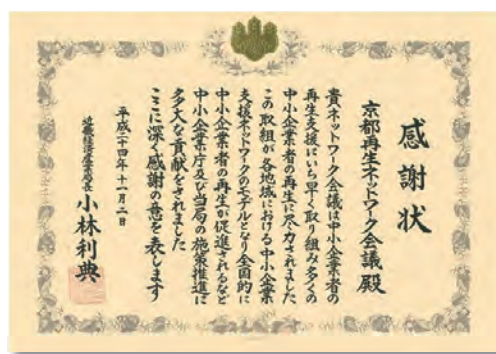 感謝状
京都再生ネットワーク会議殿
貴ネットワーク会議は中小企業者の
再生支援にいち早く取り組み多くの
中小企業者の再生に尽力されました
この取組が各地域における中小企業
支援ネットワークのモデルとなり全国的に
中小企業者の再生が促進されるなど
中小企業庁及び当局の施策推進に
多大な貢献をされました
ここに深く感謝の意を表します
平成二十四年十一月二日
近畿経済産業局長 小林利典